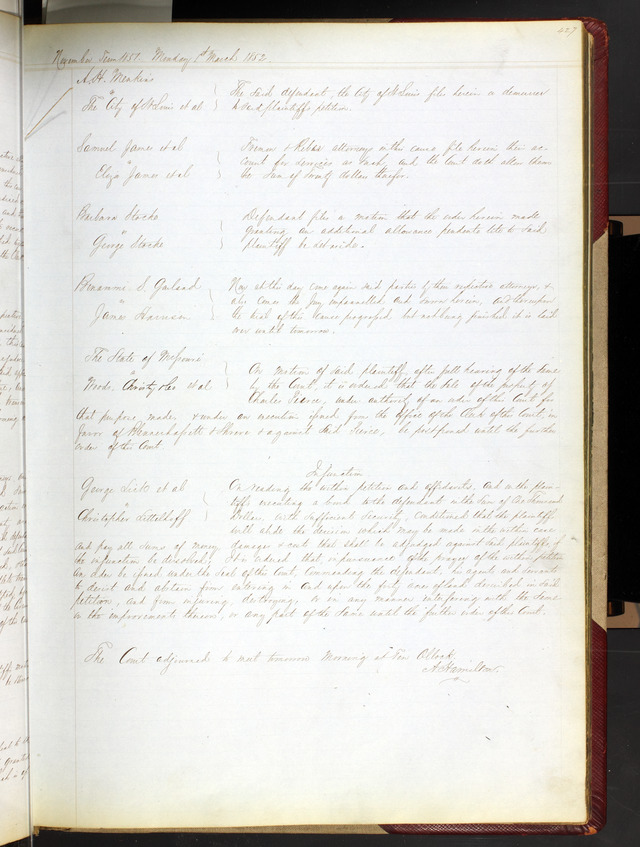 427
November Term 1851 Monday 1st March 1852
A. H. Menkins
" The said defendant, the City of St Louis files herein a demurrer
The City of St Louis et al to said plaintiffs petition.
Samuel James et al attorneys in the cause file herein their ac-
" count for services as such, and the Court doth allow them
Eliza James et al the sum of twenty dollars therefor.
Barbara Stocke Defendant files a motion that the order herein made
" granting an additional allowance pendente lite to said
George Stocke plaintiff be set aside.
S. Garland Now at this day come again said parties by their respective attorneys, &
" also comes the Jury impannelled and sworn herein, and thereupon
James Harrison the trial of this cause progressed, but not being finished it is laid
over until tomorrow.
The State of Missouri
" On motion of said plaintiff, after full hearing of the same
Wood, Christy & Co et al by the Court, it is ordered that the sale of the property of
Charles Pearce, under authority of an order of this Court for
that purpose made, & under an execution issued from the office of the Clerk of this Court in
favor of & against said Pearce, be postponed until the further
order of this Court
Injunction
George et al On reading the within petition and affidavits, and on the plain-
" tiffs executing a bond to the defendant in the sum of One Thousand
Christopher Dollars, with sufficient security, conditioned that the plaintiffs
will abide the decision which may be made in the within case
and pay all sums of money damages & costs that shall be adjudged against said plaintiffs if
the injunction be dissolved; It is ordered that in pursuance with prayer of the within petition
an order be issued under the seal of this Court, commanding the defendant his agents and servants
to desist and abstain from entering in and upon the forty acres of land described in said
petition, and from injuring, destroying, or in any manner interfering with the same
or the improvements thereon, or any part of the same until the further order of this Court.
The Court adjourned to meet tomorrow Morning at Ten OClock,
A. Hamilton